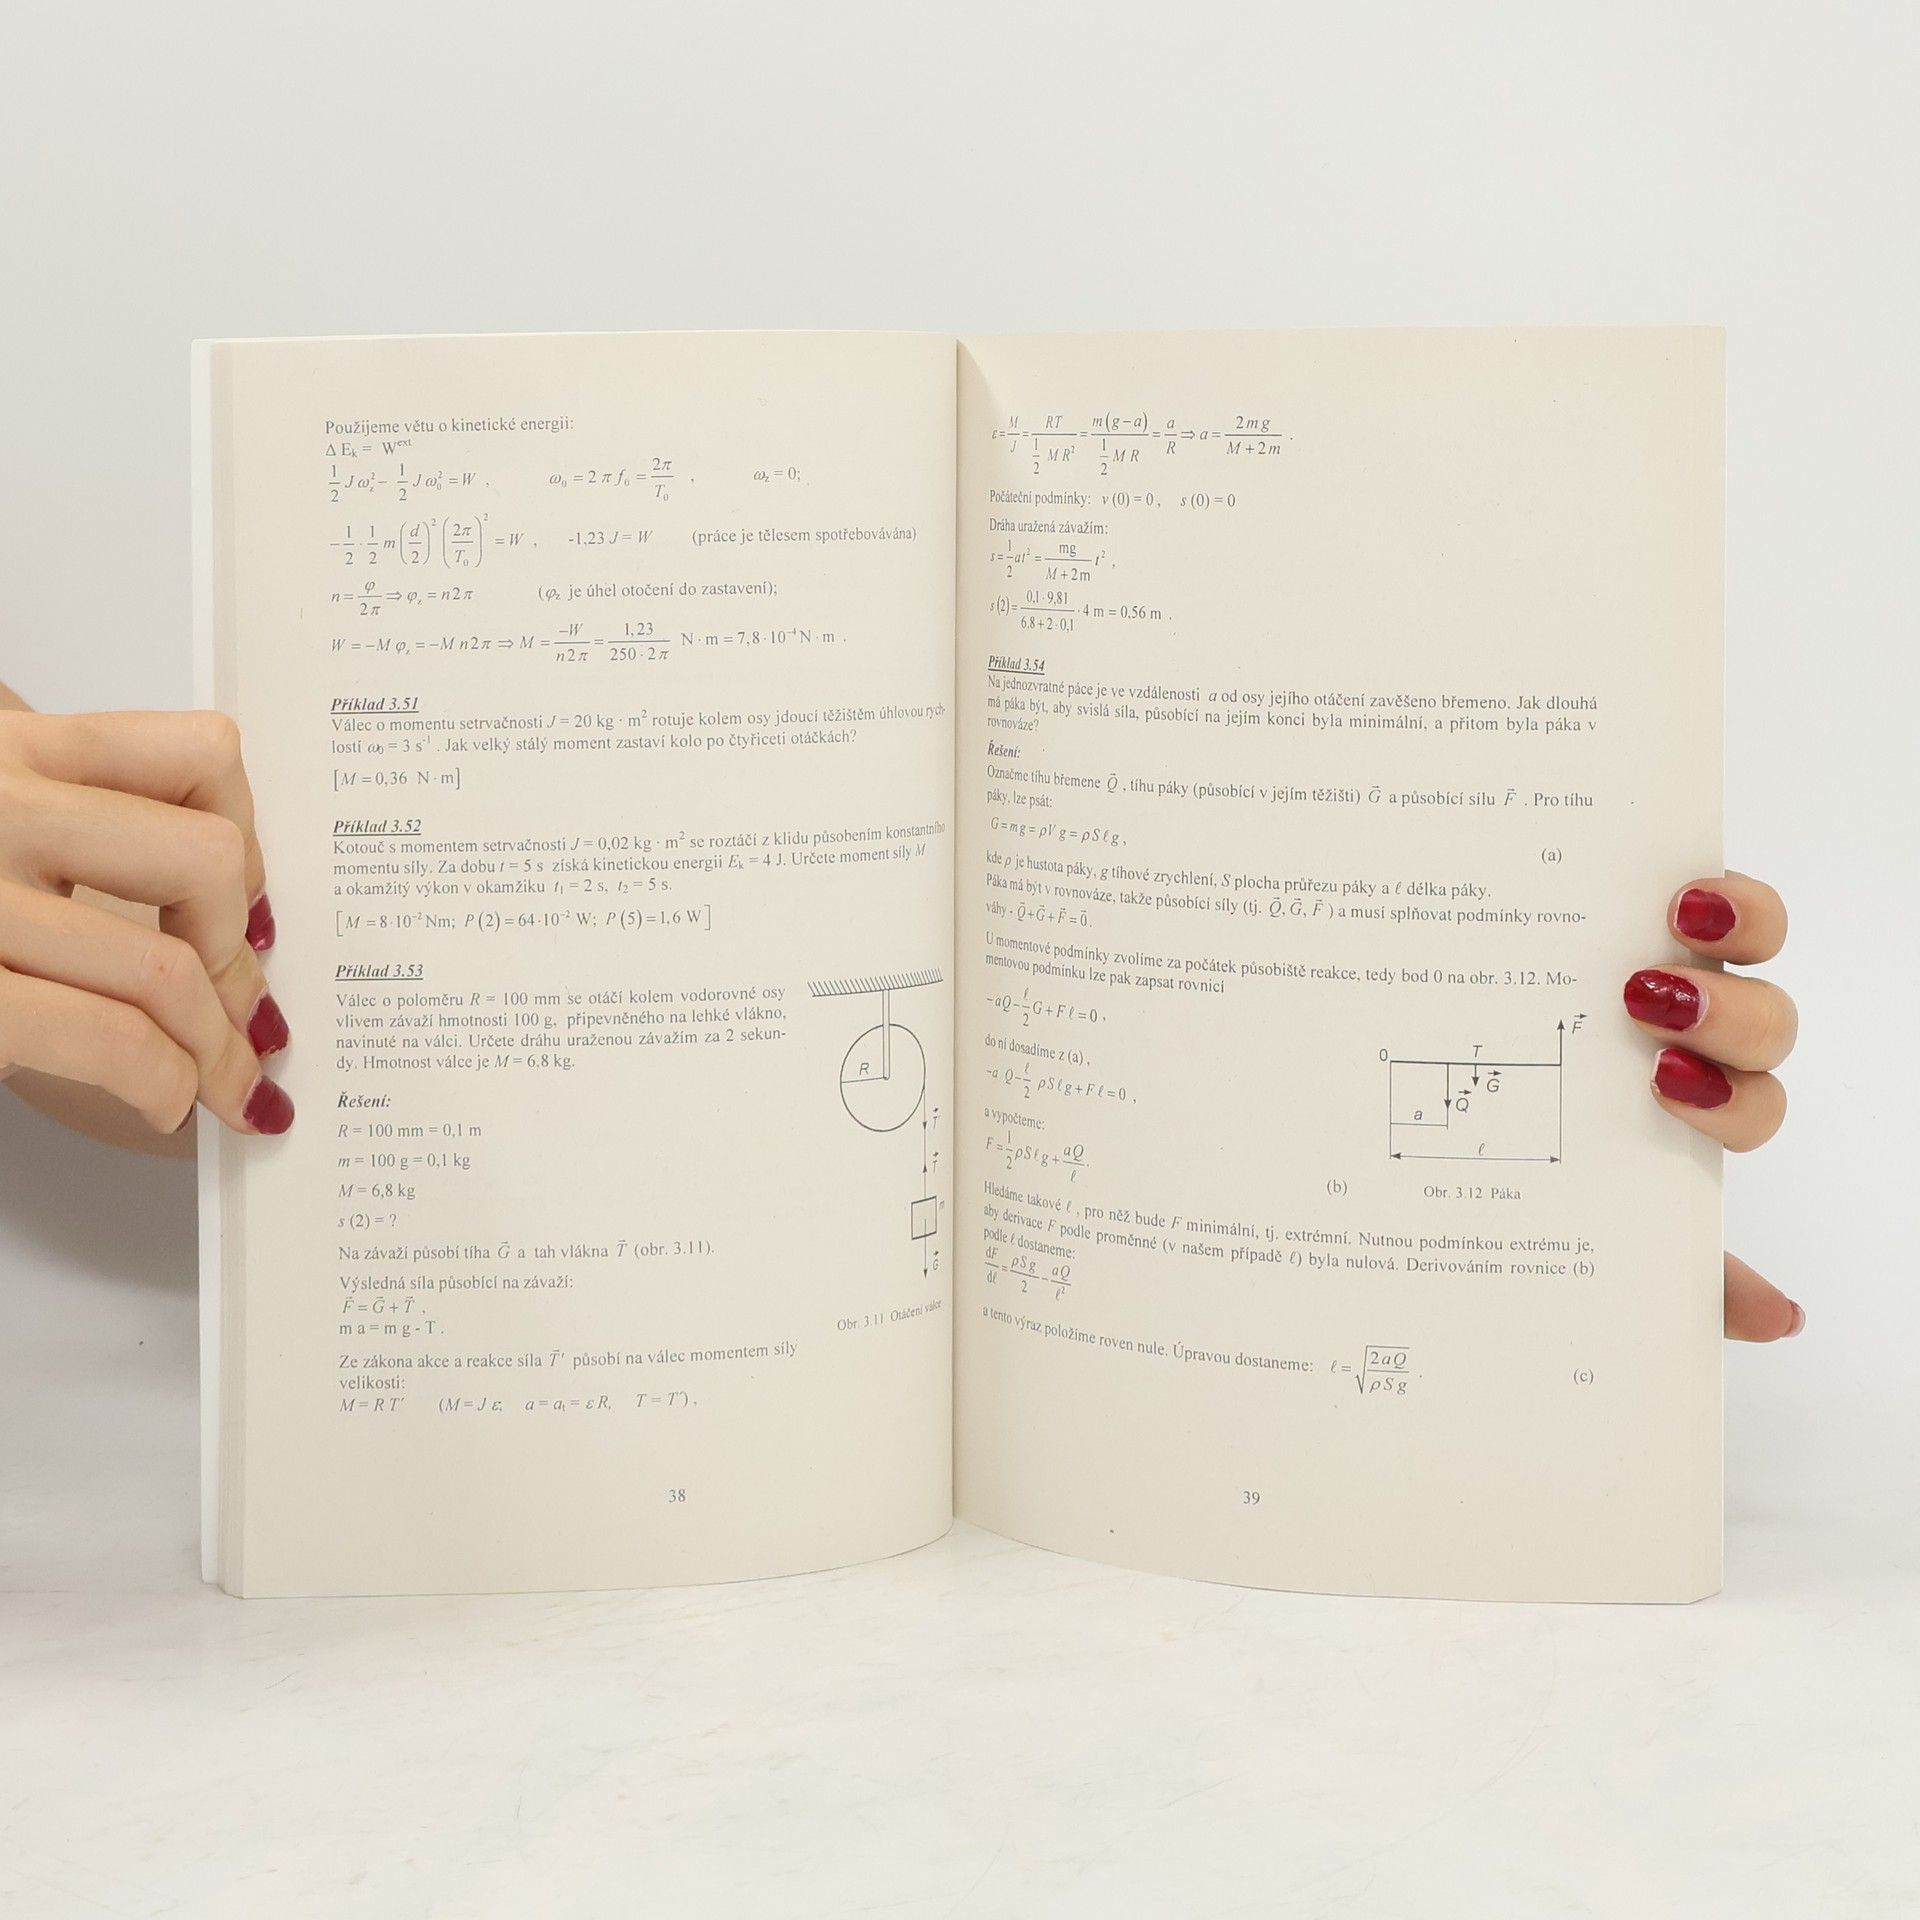 Použijeme větu o kinetické energii:
Δ Eₖ = Wᵉˣᵗ
1/2 J ω_z² - 1/2 J ω₀² = W , ω₀ = 2 π f₀ = 2π/T₀ , ω_z = 0;
-1/2 · 1/2 m (d/2)² (2π/T₀)² = W , -1,23 J = W (práce je tělesem spotřebovávána)
n = φ/2π ⇒ φ_z = n2π (φ_z je úhel otočení do zastavení);
W = -M φ_z = -M n2π ⇒ M = -W/n2π = 1,23/250·2π N·m = 7,8·10⁻⁴ N·m .
Příklad 3.51
Válec o momentu setrvačnosti J = 20 kg · m² rotuje kolem osy jdoucí těžištěm úhlovou rych-
lostí ω₀ = 3 s⁻¹ . Jak velký stálý moment zastaví kolo po čtyřiceti otáčkách?
[M = 0,36 N·m]
Příklad 3.52
Kotouč s momentem setrvačnosti J = 0,02 kg · m² se roztáčí z klidu působením konstantního
momentu síly. Za dobu t = 5 s získá kinetickou energii Eₖ = 4 J. Určete moment síly M
a okamžitý výkon v okamžiku t₁ = 2 s, t₂ = 5 s.
[M = 8·10⁻² Nm; P(2) = 64·10⁻² W; P(5) = 1,6 W]
Příklad 3.53
Válec o poloměru R = 100 mm se otáčí kolem vodorovné osy
vlivem závaží hmotnosti 100 g, připevněného na lehké vlákno,
navinuté na válci. Určete dráhu uraženou závažím za 2 sekun-
dy. Hmotnost válce je M = 6,8 kg.
Řešení:
R = 100 mm = 0,1 m
m = 100 g = 0,1 kg
M = 6,8 kg
s (2) = ?
Na závaží působí tíha G⃗ a tah vlákna T⃗ (obr. 3.11).
Výsledná síla působící na závaží:
F⃗ = G⃗ + T⃗ ,
m a = m g - T .
Ze zákona akce a reakce síla T⃗′ působí na válec momentem síly
velikosti:
M = R T′ (M = J ε; a = aₜ = ε R, T = T′) ,
R
T⃗
T⃗
m
G⃗
Obr. 3.11 Otáčení válce
38
ε = M/J = RT/(1/2 MR²) = m(g-a)/(1/2 MR) = a/R ⇒ a = 2mg/(M+2m) .
Počáteční podmínky: v (0) = 0 , s (0) = 0
Dráha uražená závažím:
s = 1/2 at² = mg/(M+2m) t² ,
s(2) = 0,1·9,81/(6.8+2·0,1) · 4 m = 0,56 m .
Příklad 3.54
Na jednozvratné páce je ve vzdálenosti a od osy jejího otáčení zavěšeno břemeno. Jak dlouhá
má páka být, aby svislá síla, působící na jejím konci byla minimální, a přitom byla páka v
rovnováze?
Řešení:
Označme tíhu břemene Q⃗ , tíhu páky (působící v jejím těžišti) G⃗ a působící sílu F⃗ . Pro tíhu
páky, lze psát:
G = mg = ρV g = ρS ℓ g ,
(a)
kde ρ je hustota páky, g tíhové zrychlení, S plocha průřezu páky a ℓ délka páky.
Páka má být v rovnováze, takže působící síly (tj. Q⃗, G⃗, F⃗ ) a musí splňovat podmínky rovno-
váhy - Q⃗+G⃗+F⃗ = 0⃗.
U momentové podmínky zvolíme za počátek působiště reakce, tedy bod 0 na obr. 3.12. Mo-
mentovou podmínku lze pak zapsat rovnicí
-aQ - ℓ/2 G + F ℓ = 0 ,
do ní dosadíme z (a) ,
-a Q - ℓ/2 ρSℓg + F ℓ = 0 ,
a vypočteme:
F = 1/2 ρSℓg + aQ/ℓ .
(b)
0
T
F⃗
G⃗
Q⃗
a
ℓ
Obr. 3.12 Páka
Hledáme takové ℓ , pro něž bude F minimální, tj. extrémní. Nutnou podmínkou extrému je,
aby derivace F podle proměnné (v našem případě ℓ) byla nulová. Derivováním rovnice (b)
podle ℓ dostaneme:
dF/dℓ = ρSg/2 - aQ/ℓ²
a tento výraz položíme roven nule. Úpravou dostaneme: ℓ = √(2aQ/ρSg) .
(c)
39